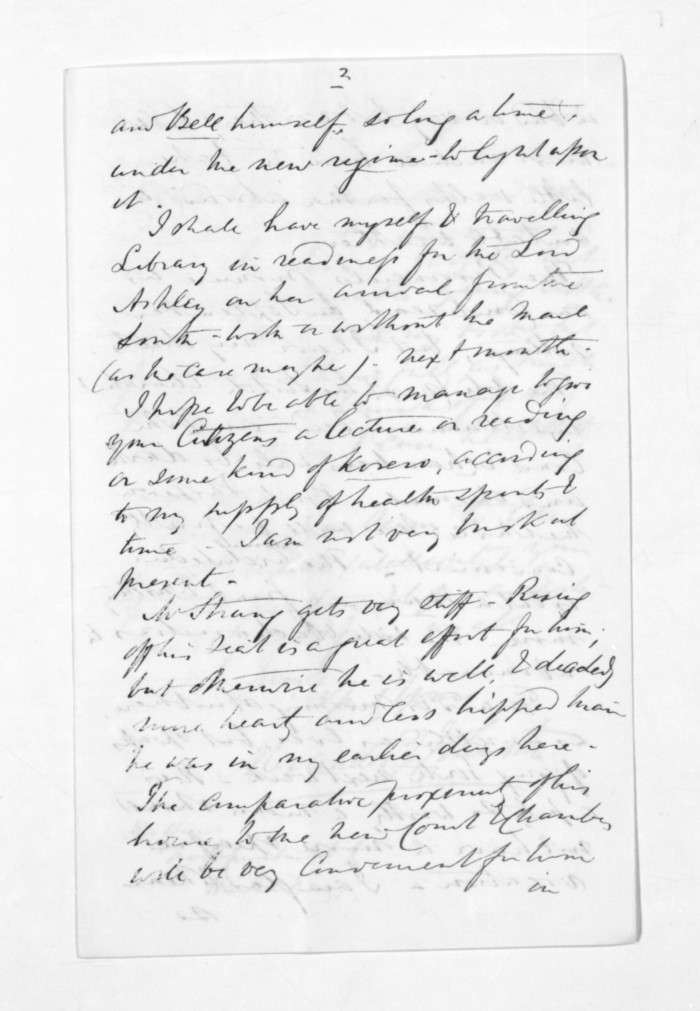 2
and Bell himself, so long a time
under the new regime - to light upon
it.
I shall have myself & travelling
Library in readiness for the Lord
Ashley on her arrival from the
South - with or without the Mail
(as the case may be). next month.
I hope to be able to manage to give
your Citizens a lecture or reading
or some kind of Korero, according
to my supply of health spirits &
time I am not very brisk at
present -
Mr Strang gets very stiff - Rising
off his seat is a great effort for him;
but otherwise he is well, & decidedly
more hearty and less hipped than
he was in my earlier days here -
The comparative proximity of his
house to the new Court & Chambers
will be very convenient for him
in